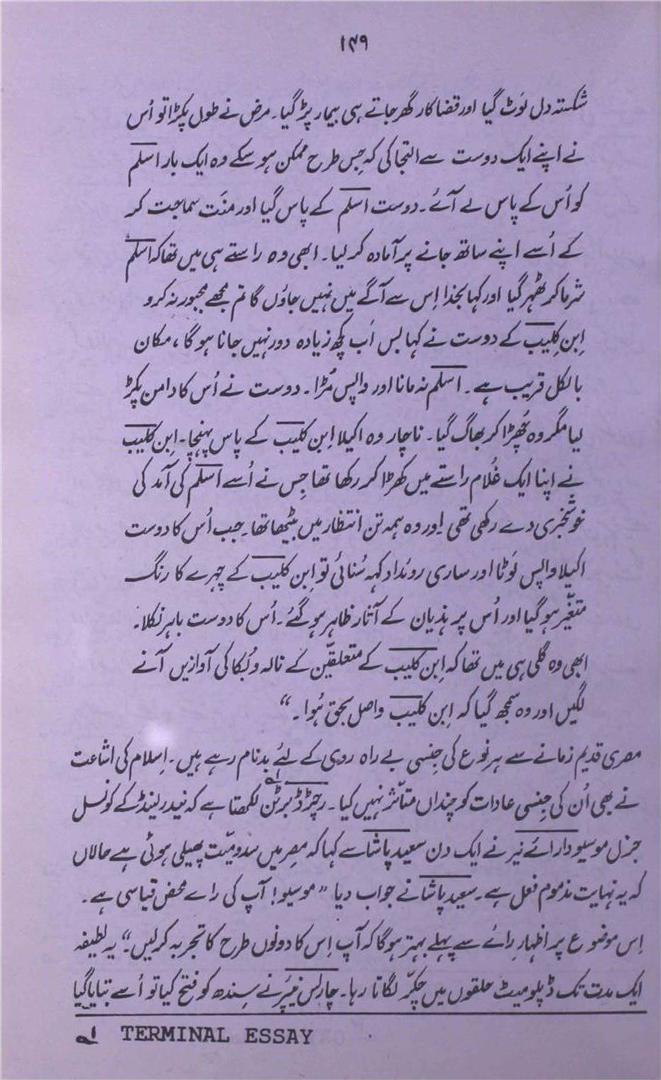 ۱۴۹
شکستہ دل لوٹ گیا اور قضا کار گھر جاتے ہی بیمار پڑ گیا۔ مرض نے طول پکڑا تو اُس
نے اپنے ایک دوست سے التجا کی کہ جس طرح ممکن ہو سکے وہ ایک بار اسلم
کو اُس کے پاس لے آئے۔ دوست اسلم کے پاس گیا اور منّت سماجت کر
کے اُسے اپنے ساتھ جانے پر آمادہ کر لیا۔ ابھی وہ راستے ہی میں تھا کہ اسلم
شرما کر ٹھہر گیا اور کہا بخدا اِس سے آگے میں نہیں جاؤں گا تم مجھے مجبور نہ کرو
اِبن کلیب کے دوست نے کہا بس اَب کچھ زیادہ دور نہیں جانا ہو گا، مکان
بالکل قریب ہے۔ اسلم نہ مانا اور واپس مُڑا۔ دوست نے اُس کا دامن پکڑ
لیا مگر وہ چُھڑا کر بھاگ گیا۔ ناچار وہ اکیلا اِبن کلیب کے پاس پہنچا۔ اِبن کلیب
نے اپنا ایک غُلام راستے میں کھڑا کر رکھا تھا جس نے اُسے اسلم کی آمد کی
خوشخبری دے رکھی تھی اور وہ ہمہ تن انتظار میں بیٹھا تھا۔ جب اُس کا دوست
اکیلا واپس لوٹا اور ساری روئداد کہہ سُنائی تو اِبن کلیب کے چہرے کا رنگ
متغیّر ہو گیا اور اُس پر ہذیان کے آثار ظاہر ہو گئے۔ اُس کا دوست باہر نکلا۔
ابھی وہ گلی ہی میں تھا کہ اِبن کلیب کے متعلّقین کے نالہ و بُکا کی آوازیں آنے
لگیں اور وہ سمجھ گیا کہ اِبن کلیب واصل بحق ہُوا۔“
مصری قدیم زمانے سے ہر نوع کی جنسی بے راہ روی کے لئے بدنام رہے ہیں۔ اِسلام کی اشاعت
نے بھی اُن کی جنسی عادات کو چنداں متاثر نہیں کیا۔ رچرڈ برٹن لکھتا ہے کہ نیدر لینڈز کے کونسل
جنرل موسیو دارائے نیر نے ایک دن سعید پاشا سے کہا کہ مصر میں سدومیّت پھیلی ہوئی ہے حالاں
کہ یہ نہایت مذموم فعل ہے۔ سعید پاشا نے جواب دیا ”موسیو! آپ کی رائے محض قیاسی ہے۔
اِس موضوع پر اظہار رائے سے پہلے بہتر ہو گا کہ آپ اِس کا دونوں طرح کا تجربہ کر لیں۔“ یہ لطیفہ
ایک مدت تک ڈپلومیٹ حلقوں میں چکّر لگاتا رہا۔ چارلس نیپیر نے سندھ کو فتح کیا تو اُسے بتایا گیا
۱ TERMINAL ESSAY